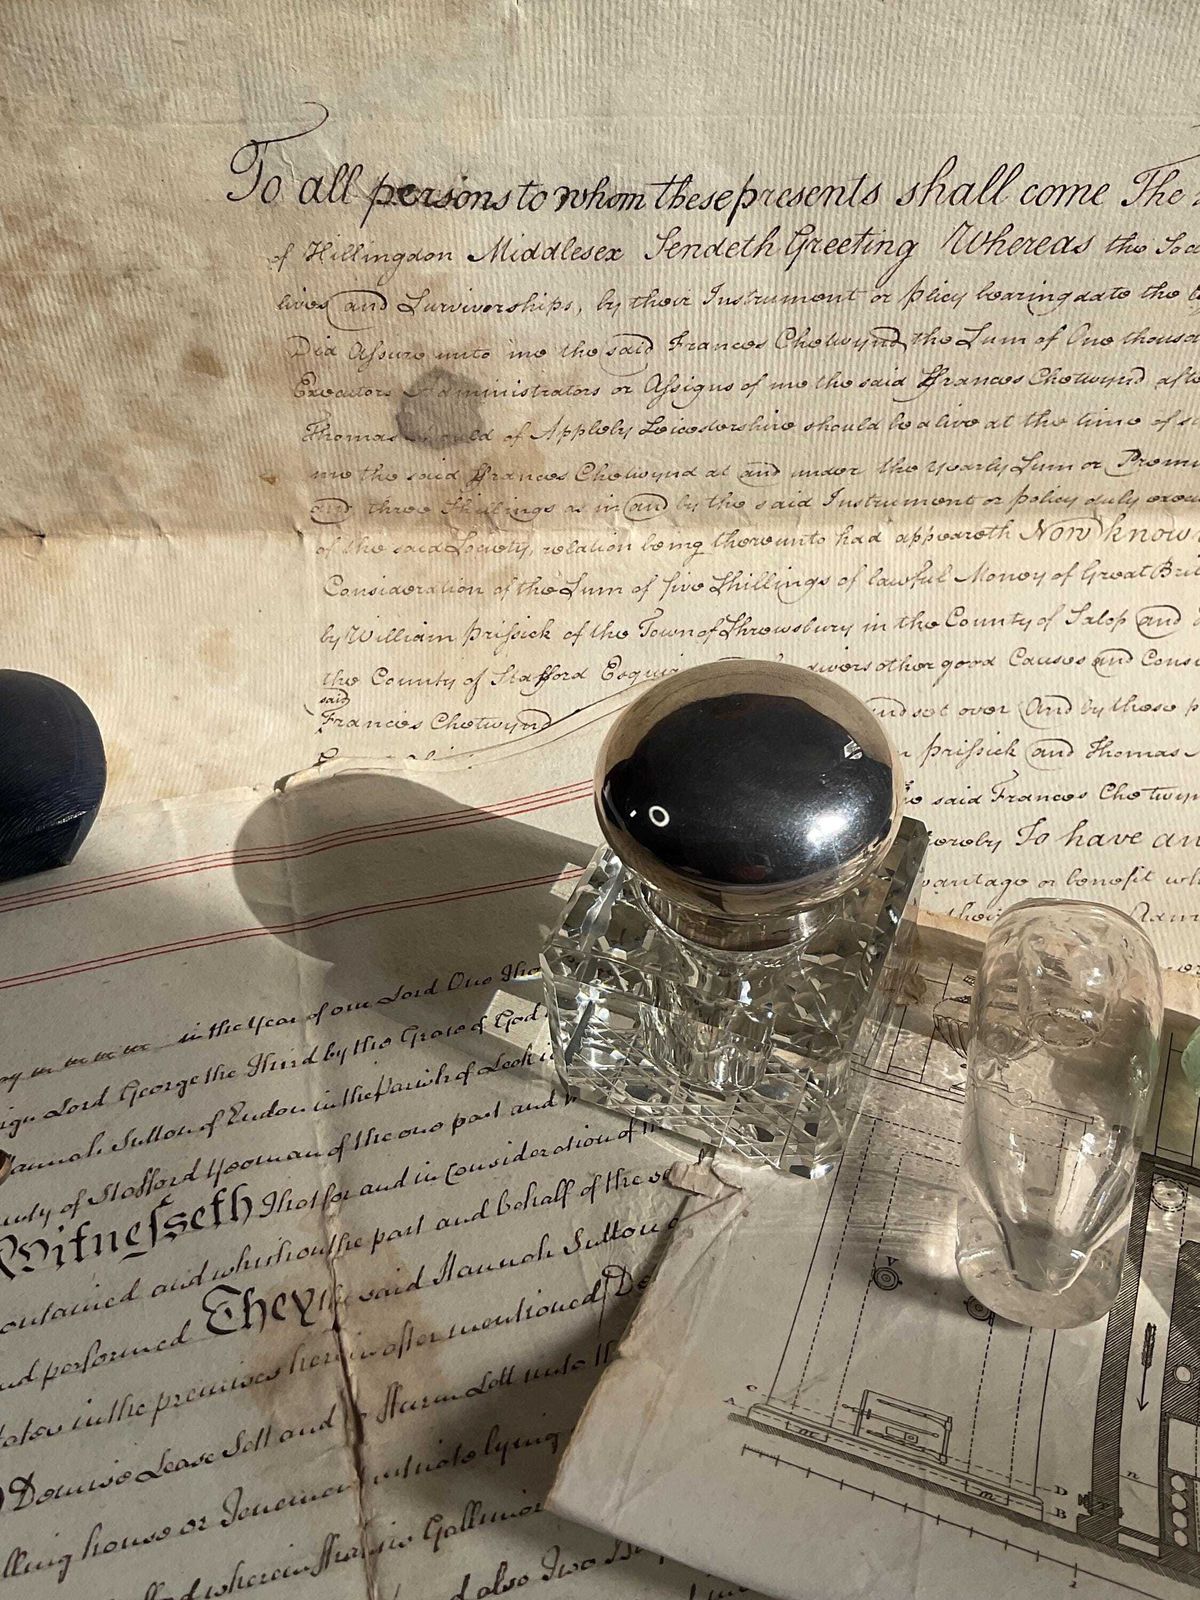 To all persons to whom these presents shall come The
of Hillingdon Middlesex Sendeth Greeting Whereas the Soc
lives and Survivorships, by their Instrument or policy bearing date the
Did Assure unto me the said Francis Chetwynd the Sum of One thousa
Executors Administrators or Assigns of me the said Francis Chetwynd afte
Thomas of Appleby Leicestershire should be alive at the time of
me the said Francis Chetwynd at and under the yearly Sum or Premi
and three Shillings as in and by the said Instrument or policy duly exec
of the said Society, relation being thereunto had appeareth Now know
Consideration of the Sum of five Shillings of lawful Money of Great Brit
by William Prissick of the Town of Shrewsbury in the County of Salop and
the County of Stafford Esqui divers other good Causes and Consi
said
Francis Chetwynd and set over And by these p
Prissick and Thomas
said Francis Chetwyn
hereby To have an
vantage or benefit wh
their
in the Year of our Lord One Tho
ign Lord George the Third by the Grace of God
annah Sutton of Rudon in the Parish of Leek
unty of Stafford Yeoman of the one part and
Witnesseth That for and in Consideration of
ontained and which on the part and behalf of the
nd performed They the said Hannah Sutton
in the premises herein after mentioned De
Demise Lease Sett and to Farm Lett unto
lling house or Tenement situate lying
wherein Francis Gallimor
also Two
V
C
A
m
m
D
B
n